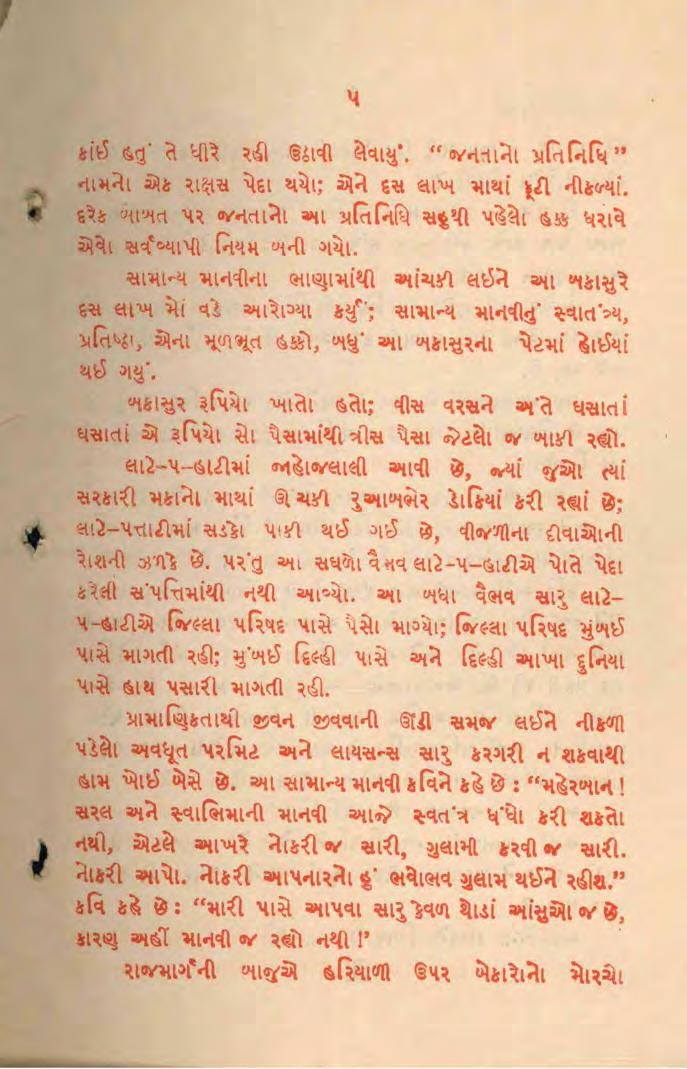 ૫
કાંઈ હતું તે ધીરે રહી ઉઠાવી લેવાયું. “જનતાનો પ્રતિનિધિ”
નામનો એક રાક્ષસ પેદા થયો; એને દસ લાખ માથાં ફૂટી નીકળ્યાં.
દરેક બાબત પર જનતાનો આ પ્રતિનિધિ સહુથી પહેલો હક્ક ધરાવે
એવો સર્વવ્યાપી નિયમ બની ગયો.
સામાન્ય માનવીના ભાણામાંથી આંચકી લઈને આ બકાસુરે
દસ લાખ મોં વડે આરોગ્યા કર્યું; સામાન્ય માનવીનું સ્વાતંત્ર્ય,
પ્રતિષ્ઠા, એના મૂળભૂત હક્કો, બધું આ બકાસુરના પેટમાં હોઈયાં
થઈ ગયું.
બકાસુર રૂપિયો ખાતો હતો; વીસ વરસને અંતે ઘસાતાં
ઘસાતાં એ રૂપિયો સો પૈસામાંથી ત્રીસ પૈસા જેટલો જ બાકી રહ્યો.
લાટે-પ-હાટીમાં જાહોજલાલી આવી છે, જ્યાં જુઓ ત્યાં
સરકારી મકાનો માથાં ઊંચકી રુઆબભેર ડોકિયાં કરી રહ્યાં છે;
લાટે-પત્તાટીમાં સડકો પાકી થઈ ગઈ છે, વીજળીના દીવાઓની
રોશની ઝળકે છે. પરંતુ આ સઘળો વૈભવ લાટે-પ-હાટીએ પોતે પેદા
કરેલી સંપત્તિમાંથી નથી આવ્યો. આ બધા વૈભવ સારુ લાટે-
પ-હાટીએ જિલ્લા પરિષદ પાસે પૈસો માગ્યો; જિલ્લા પરિષદ મુંબઈ
પાસે માગતી રહી; મુંબઈ દિલ્હી પાસે અને દિલ્હી આખા દુનિયા
પાસે હાથ પસારી માગતી રહી.
પ્રામાણિકતાથી જીવન જીવવાની ઊંડી સમજ લઈને નીકળી
પડેલો અવધૂત પરમિટ અને લાયસન્સ સારુ કરગરી ન શકવાથી
હામ ખોઈ બેસે છે. આ સામાન્ય માનવી કવિને કહે છે : “મહેરબાન !
સરલ અને સ્વાભિમાની માનવી આજે સ્વતંત્ર ધંધો કરી શકતો
નથી, એટલે આખરે નોકરી જ સારી, ગુલામી કરવી જ સારી.
નોકરી આપો. નોકરી આપનારનો હું ભવોભવ ગુલામ થઈને રહીશ.”
કવિ કહે છે : “મારી પાસે આપવા સારુ કેવળ થોડાં આંસુઓ જ છે,
કારણ અહીં માનવી જ રહ્યો નથી !’
રાજમાર્ગની બાજુએ હરિયાળી ઉપર બેકારોનો મોરચો